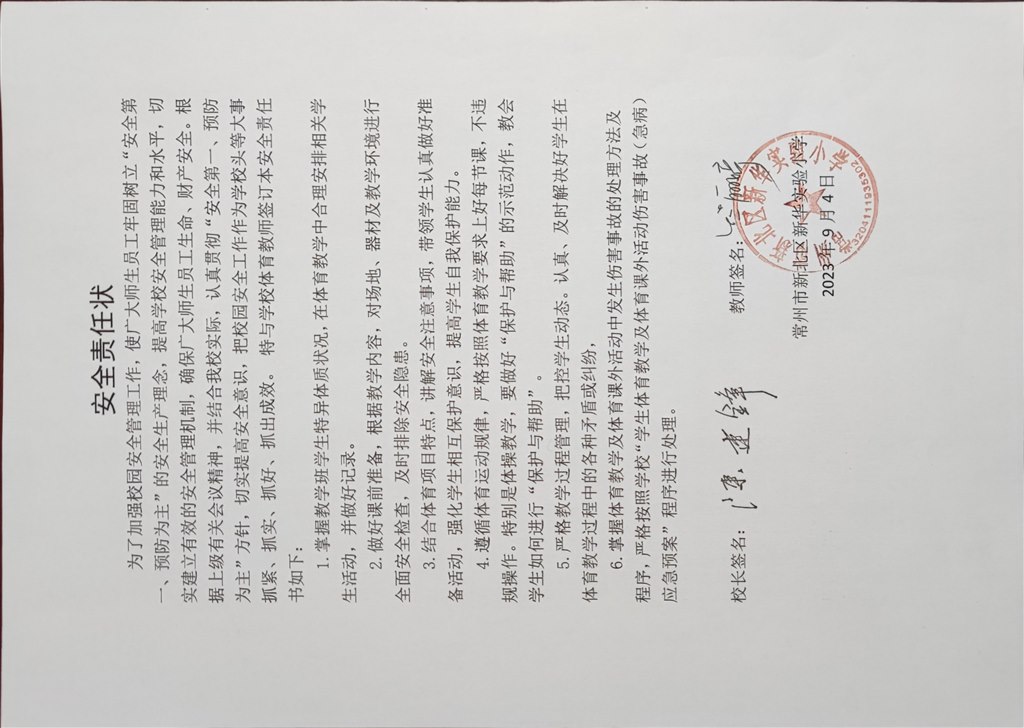 安全责任状
为了加强校园安全管理工作，使广大师生员工牢固树立“安全第
一、预防为主”的安全生产理念，提高学校安全管理能力和水平，切
实建立有效的安全管理机制，确保广大师生员工生命、财产安全。根
据上级有关会议精神，并结合我校实际，认真贯彻“安全第一、预防
为主”方针，切实提高安全意识，把校园安全工作作为学校头等大事
抓紧、抓实、抓好、抓出成效。 特与学校体育教师签订本安全责任
书如下：
1. 掌握教学班学生特异体质状况，在体育教学中合理安排相关学
生活动，并做好记录。
2. 做好课前准备，根据教学内容，对场地、器材及教学环境进行
全面安全检查，及时排除安全隐患。
3. 结合体育项目特点，讲解安全注意事项，带领学生认真做好准
备活动，强化学生相互保护意识，提高学生自我保护能力。
4. 遵循体育运动规律，严格按照体育教学要求上好每节课，不违
规操作。特别是体操教学，要做好“保护与帮助”的示范动作，教会
学生如何进行“保护与帮助”。
5. 严格教学过程管理，把控学生动态。认真、及时解决好学生在
体育教学过程中的各种矛盾或纠纷，
6. 掌握体育教学及体育课外活动中发生伤害事故的处理方法及
程序，严格按照学校“学生体育教学及体育课外活动伤害事故（急病）
应急预案”程序进行处理。
校长签名： 教师签名：
常州市新北区新华实验小学
2023年9月4日
3204111935302